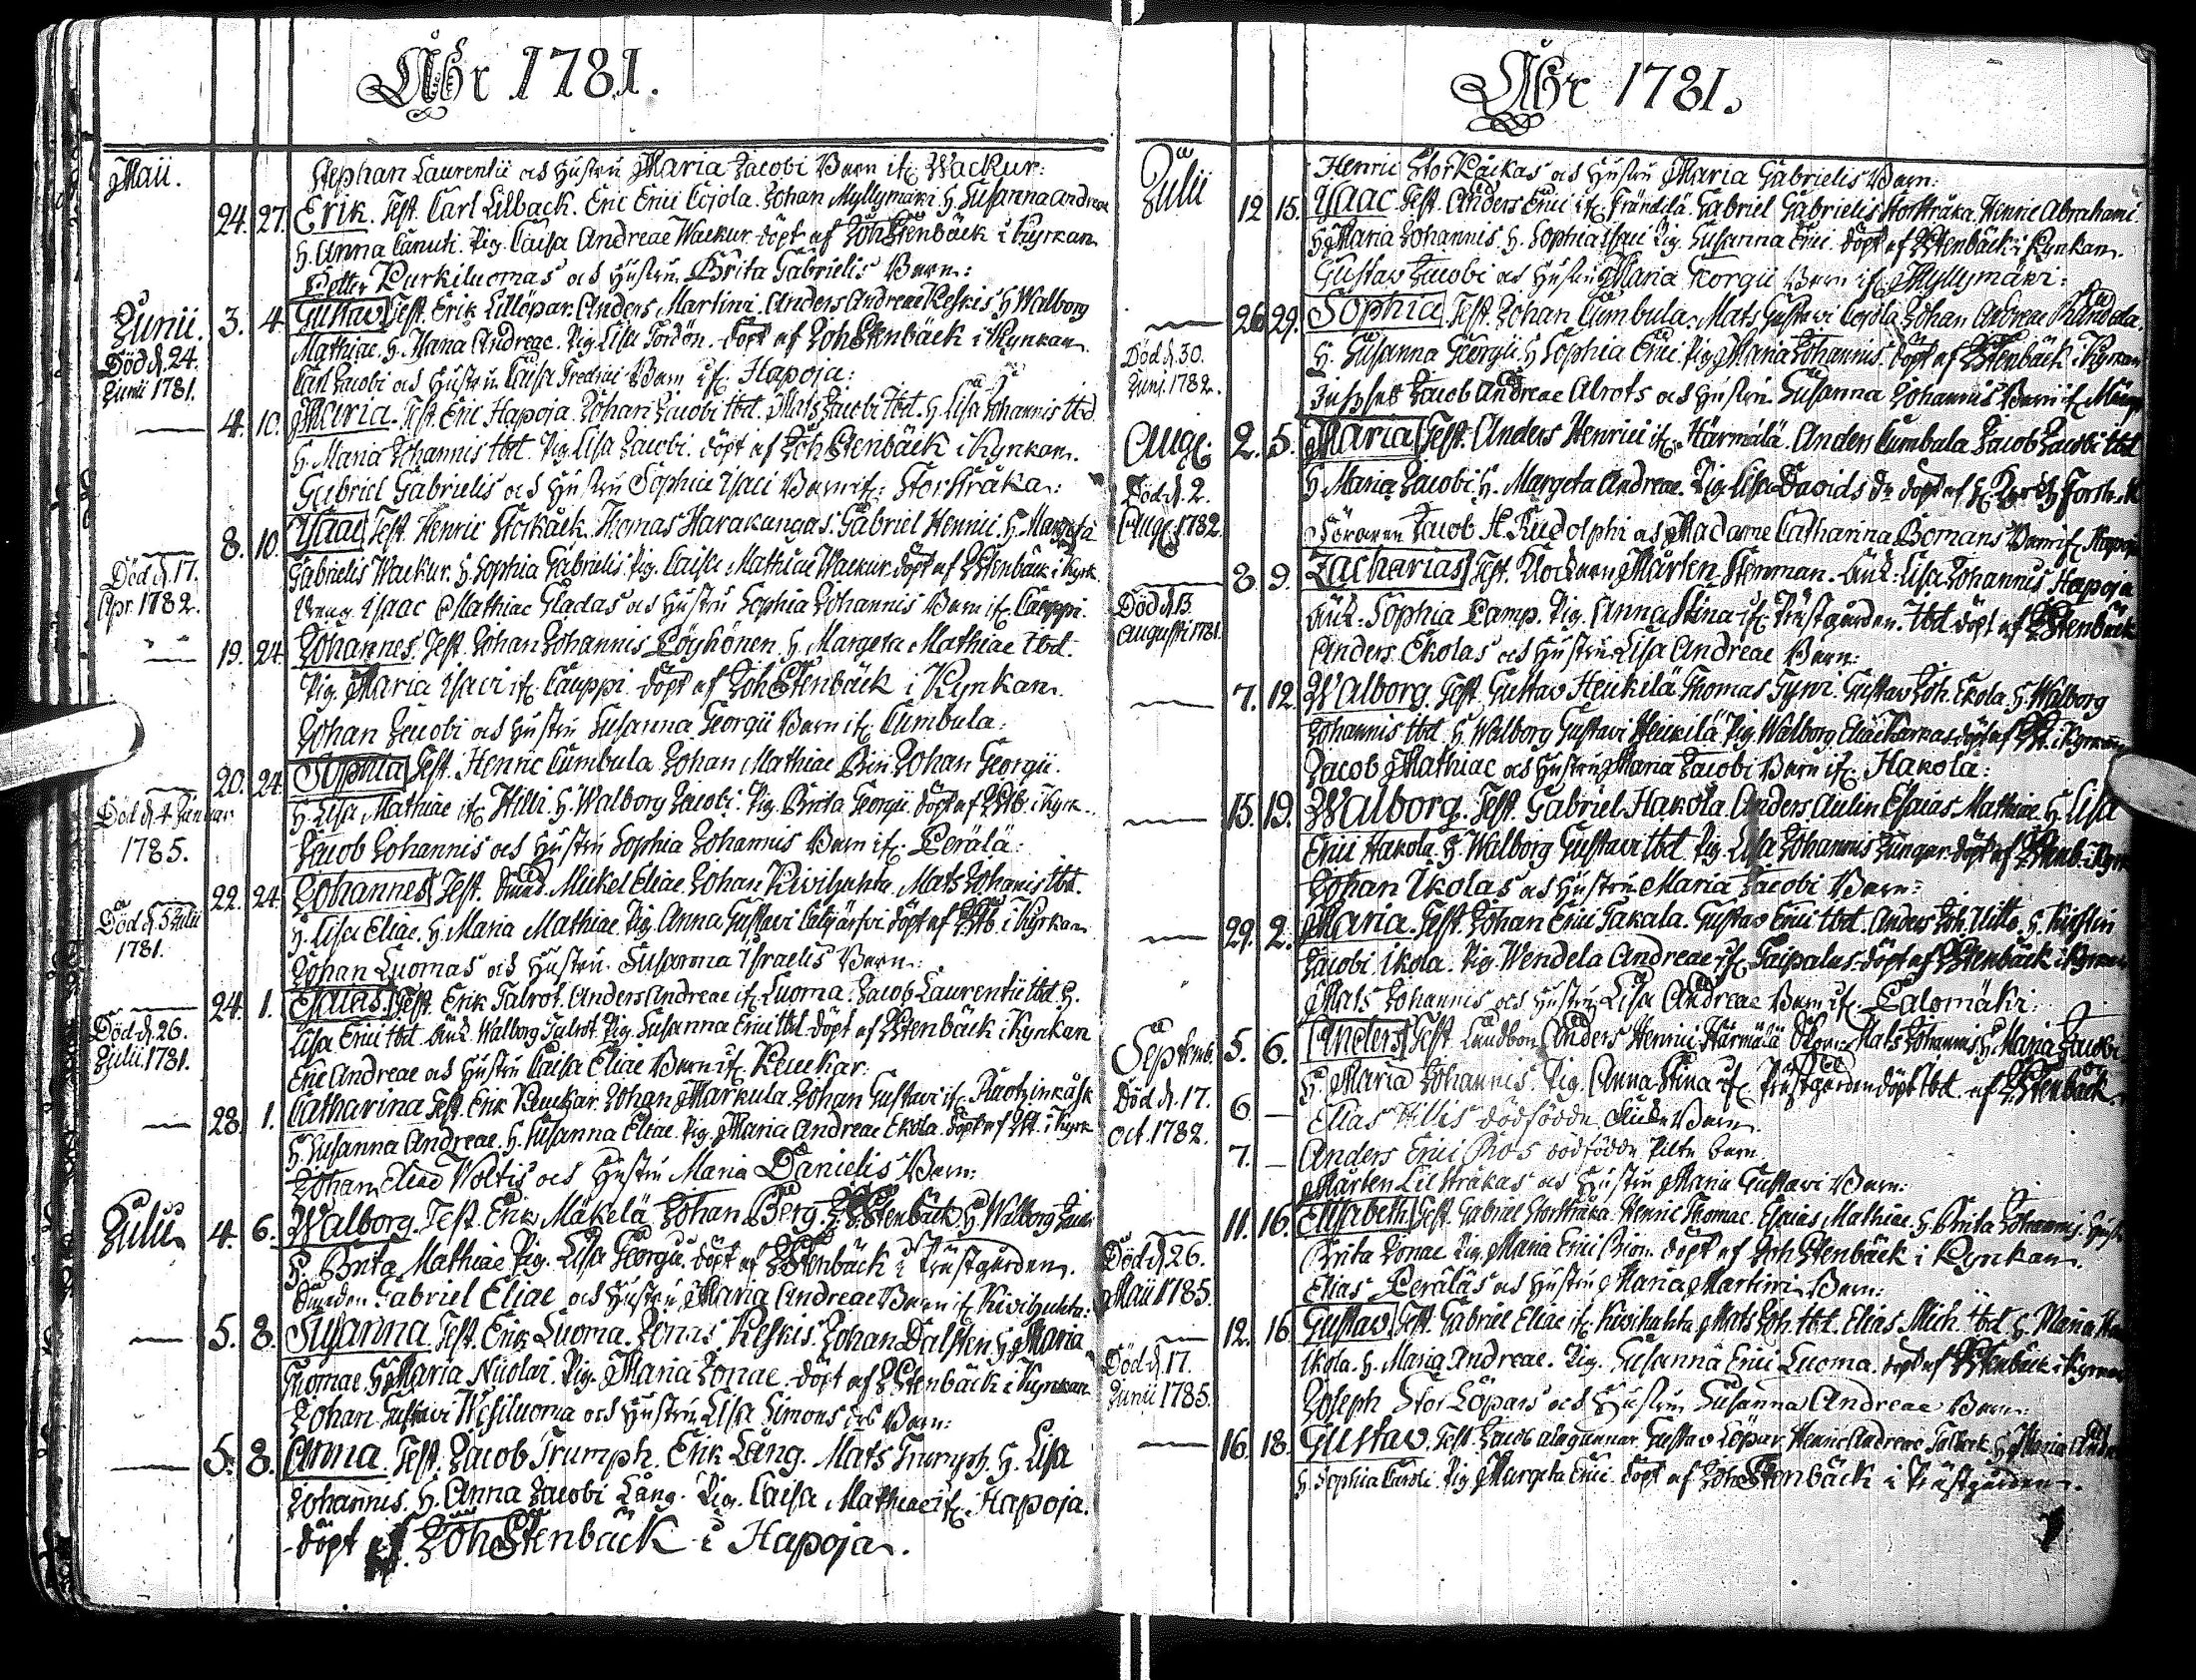 Åhr 1781.
Maii.
Stephan Laurentii och Hustru Maria Jacobi Barn if. Wackur:
24. 27. Erik. Test. Carl Lilback. Eric Erici Cojola. Johan Myllymäki H. Susanna Andreae
H. Anna Canuti. Pig. Caisa Andreae Wackur. döpt af Joh Stenbäck i Kyrkan
Petter Kurkiluomas och Hustru Brita Gabrielis Barn:
Junii. 3. 4. Gustav Test. Erik Lillöpar. Anders Martini. Anders Andreae Keskis H Walborg
Död d. 24. Junii 1781.
Mathiae. H. Maria Andreae. Pig. Lisa Tordön. döpt af Joh Stenbäck i Kyrkan.
Carl Jacobi och Hustru Caisa Fredrici Barn if. Hapoja:
4. 10. Maria. Test. Eric Hapoja. Johan Jacobi Ibd. Mats Jacobi Ibd. H. Lisa Johannis Ibd
H. Maria Johannis Ibd. Pig. Lisa Jacobi. döpt af Joh Stenbäck i Kyrkan.
Gabriel Gabrielis och Hustru Sophia Isaci Barn if: Storstråka:
8. 10. Ysaac Test. Henric Storkåck. Thomas Harakangas. Gabriel Henrici. H. Margeta
Död d. 17. Apr. 1782.
Gabrielis Wackur. H. Sophia Gabrielis. Pig. Caisa Mathiae Wackur. döpt af J Stenbäck i Kyrk.
Dreng Isaac Mathiae Gladas och Hustru Sophia Johannis Barn if. Cauppi.
19. 24. Johannes. Test. Johan Johannis Pöyhönen. H. Margeta Mathiae Ibd.
Pig. Maria Isaci if. Cauppi. döpt af Joh Stenbäck i Kyrkan.
Johan Jacobi och Hustru Susanna Georgii Barn if. Cumbula:
20. 24. Sophia Test. Henric Cumbula. Johan Mathiae Biri. Johan Georgii.
Död d. 4 Januar. 1785.
H. Lisa Mathiae if. Hilli. H. Walborg Jacobi. Pig. Brita Georgii. döpt af J Stb. i Kyrk.
Jacob Johannis och Hustru Sophia Johannis Barn if. Perälä:
22. 24. Johannes Test. Mickel Eliae. Johan Kivihuhta. Mats Johannis Ibd.
Död d. 5 Julii 1781.
H. Lisa Eliae. H. Maria Mathiae. Pig. Anna Gustavi döpt af J Stb. i Kyrkan
Johan Luomas och Hustru Susanna Israelis Barn:
24. 1. Esaias. Test. Erik Talrot. Anders Andreae if. Luoma. Jacob Laurentii Ibd. H.
Död d. 26. Julii. 1781.
Lisa Erici Ibd. Walborg Talrot. Pig. Susanna Erici Ibd. döpt af J Stenbäck i Kyrkan
Eric Andreae och Hustru Caisa Eliae Barn if. Keuckar:
28. 1. Catharina Test. Erik Keuckar. Johan Markula. Johan Gustavi if.
H. Susanna Andreae. H. Susanna Eliae. Pig. Maria Andreae Ekola. döpt af J St. i Kyrk
Johan Eliae Woltis och Hustru Maria Danielis Barn:
Julii. 4. 6. Walborg. Test. Erik Mäkelä Johan Berg. J. Stenbäck. H. Walborg
H. Brita Mathiae. Pig. Lisa Georgii. döpt af J Stenbäck i Prästgården.
Gabriel Eliae och Hustru Maria Andreae Barn if. Kivihuhta:
5. 8. Susanna. Test. Erik Luoma. Jonas Keskis. Johan Dalsten. H. Maria
Thomae. H. Maria Nicolai. Pig. Maria Jonae. döpt af J Stenbäck i Kyrkan.
Johan Gustavi Wesiluoma och Hustru Lisa Simons Barn:
5. 8. Anna. Test. Jacob Trumph. Erik Lång. Mats Trumph. H. Lisa
Johannis. H. Anna Jacobi Lång. Pig. Caisa Mathiae if. Hapoja.
döpt af Joh Stenbäck i Hapoja.
Åhr 1781.
Julii
Henric Storkåckas och Hustru Maria Gabrielis Barn:
12 15. Ysaac. Test. Anders Erici if. Gabriel Gabrielis Storstråka. Henric Abrahami
H. Maria Johannis. H. Sophia Isaci Pig. Susanna Erici. döpt af J Stenbäck i Kyrkan.
Gustav Jacobi och Hustru Maria Georgii Barn if. Myllymäki:
26 29. Sophia Test. Johan Cumbula. Mats Gustavi Cojola. Johan Andreae
Död d. 30. Juni. 1782.
H. Susanna Georgii. H Sophia Erici. Pig. Maria Johannis. döpt af J Stenbäck i Kyrkan
Jacob Andreae Alrots och Hustru Susanna Johannis Barn if.
Aug. 2. 5. Maria Test. Anders Henrici if. Härmälä. Anders Cumbula Jacob Jacobi Ibd
Död d. 2. Aug. 1782.
H. Maria Jacobi. H. Margeta Andreae. Pig. Lisa Davids dr döpt af
Jacob H. Rudolphi och Madame Catharina Bomans Barn if. Hapoja
8. 9. Zacharias Test. Klockaren Mårten Stenman. Lisa Johannis Hapoja
Död d. 13. Augusti 1781.
Sophia Camp. Pig. Anna Stina if. Prästgården. Ibd. döpt af J Stenbäck
Anders Ekolas och Hustru Lisa Andreae Barn:
7. 12. Walborg. Test. Gustav Heickilä Thomas Gustav Joh. Ekola. H. Walborg
Johannis Ibd. H. Walborg Gustavi Heickilä Pig. Walborg döpt af J St. i Kyrkan
Jacob Mathiae och Hustru Maria Jacobi Barn if. Hakola:
15. 19. Walborg. Test. Gabriel Hakola. Anders Aulin. Esaias Mathiae. H. Lisa
Erici Hakola. H. Walborg Gustavi Ibd. Pig. Lisa Johannis Jungar. döpt af J Stenb. i Kyrk
Johan Ikolas och Hustru Maria Jacobi Barn:
29. 2. Maria. Test. Johan Erici Takala. Gustav Erici Ibd. Anders Joh. H. Kirstin
Jacobi Ikola. Pig. Wendela Andreae if. Taipalus. döpt af J Stenbäck i Kyrkan
Mats Johannis och Hustru Lisa Andreae Barn if. Palomäki:
Septemb. 5. 6. Test. Anders Henrici Härmälä Mats Johannis H. Maria Jacobi
Död d. 17. oct. 1782.
H. Maria Johannis. Pig. Anna Stina if. Prästgården döpt Ibd. af J Stenbäck.
6. — Elias Hillis dödfödde Barn.
7. — Anders Erici dödfödde Barn.
Mårten Lilstråkas och Hustru Maria Gustavi Barn:
11. 16. Elisabeth Test. Gabriel Storstråka. Henric Thomae. Esaias Mathiae. H. Brita Johannis.
Död d. 26. Maii 1785.
Brita Jonae Pig. Maria Erici döpt af Joh Stenbäck i Kyrkan.
Elias Peräläs och Hustru Maria Martini Barn:
12. 16 Gustav Test. Gabriel Eliae if. Kivihuhta Mats Joh. Ibd. Elias Mich. Ibd. H. Maria
Död d. 17. Junii 1785.
Ikola. H. Maria Andreae. Pig. Susanna Erici Luoma. döpt af J Stenbäck i Kyrkan
Joseph Stor Löpars och Hustru Susanna Andreae Barn:
16. 18. Gustav. Test. Jacob Gustav Löpar. Henric Andreae H. Maria
H. Sophia Caroli. Pig. Margeta Erici. döpt af Joh Stenbäck i Prästgården.